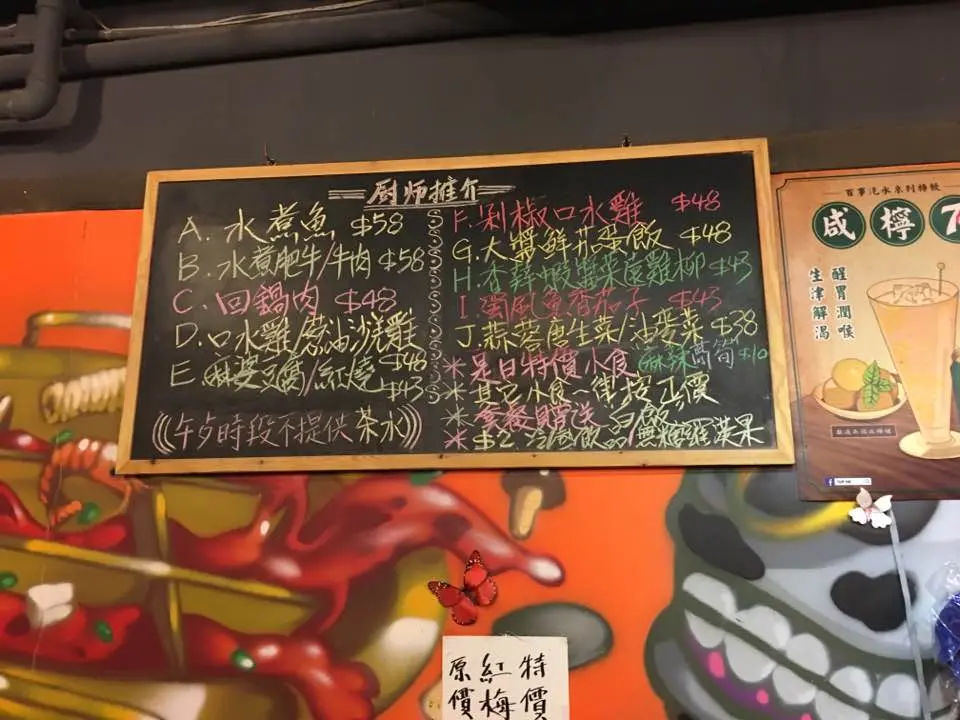 厨师推介
A. 水煮魚 $58
B. 水煮肥牛/牛肉 $58
C. 回鍋肉 $48
D. 口水雞/葱油沙浇雞 $48
E. 麻婆豆腐/紅燒 $43
((午夕時段不提供茶水))
F. 剁椒口水雞 $48
G. 大醬鮮茄蛋飯 $48
H. 香蒜蝦醬菜遠雞柳 $43
I. 魚香茄子 $43
J. 蒜蓉唐生菜/油麥菜 $38
*是日特價小食 麻辣萵筍 $10
*其它小食一律按正價
*套餐貝曾送 白飯
*$2 冷/感飲品/無糖羅漢果
百事汽水系列特飲
咸檸7
醒胃潤喉
生津解渴
特價
紅梅
原價